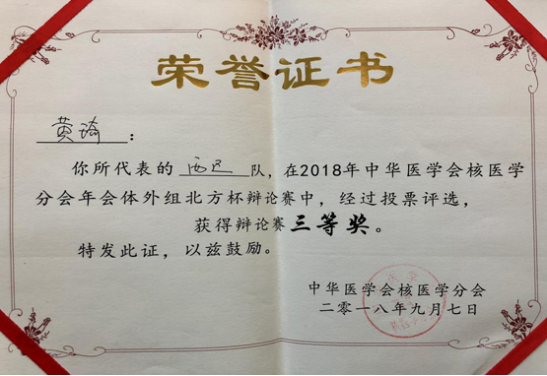 荣誉证书
黄琦：
你所代表的 西足 队，在2018年中华医学会核医学
分会年会体外组北方杯辩论赛中，经过投票评选，
获得辩论赛三等奖。
特发此证，以兹鼓励。
中华医学会核医学分会
二零一八年九月七日